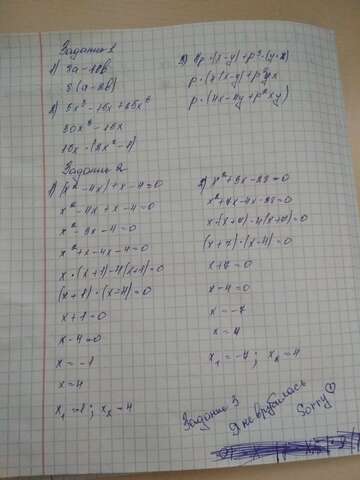 Задание 1
1) 3a-12b
2) 5x³-15x+25x³
30x³-15x
15x·(2x²-1)
3) 4p·(x-y)+p³·(y·x)
p·(4(x-y)+p²yx
p·(4x-4y+p²xy)
Задание 2
1) (x²-4x)+x-4=0
x²-4x+x-4=0
x²-3x-4=0
x²+x-4x-4=0
x·(x+1)-4(x+1)=0
(x+1)·(x-4)=0
x+1=0
x-4=0
x=-1
x=4
x₁=-1; x₂=4
2) x²+3x-28=0
x²+7x-4x-28=0
x·(x+7)-4(x+7)=0
(x+7)·(x-4)=0
x+7=0
x-4=0
x=-7
x=4
x₁=-7; x₂=4
Задание 3
Я не врубилась
Sorry♡